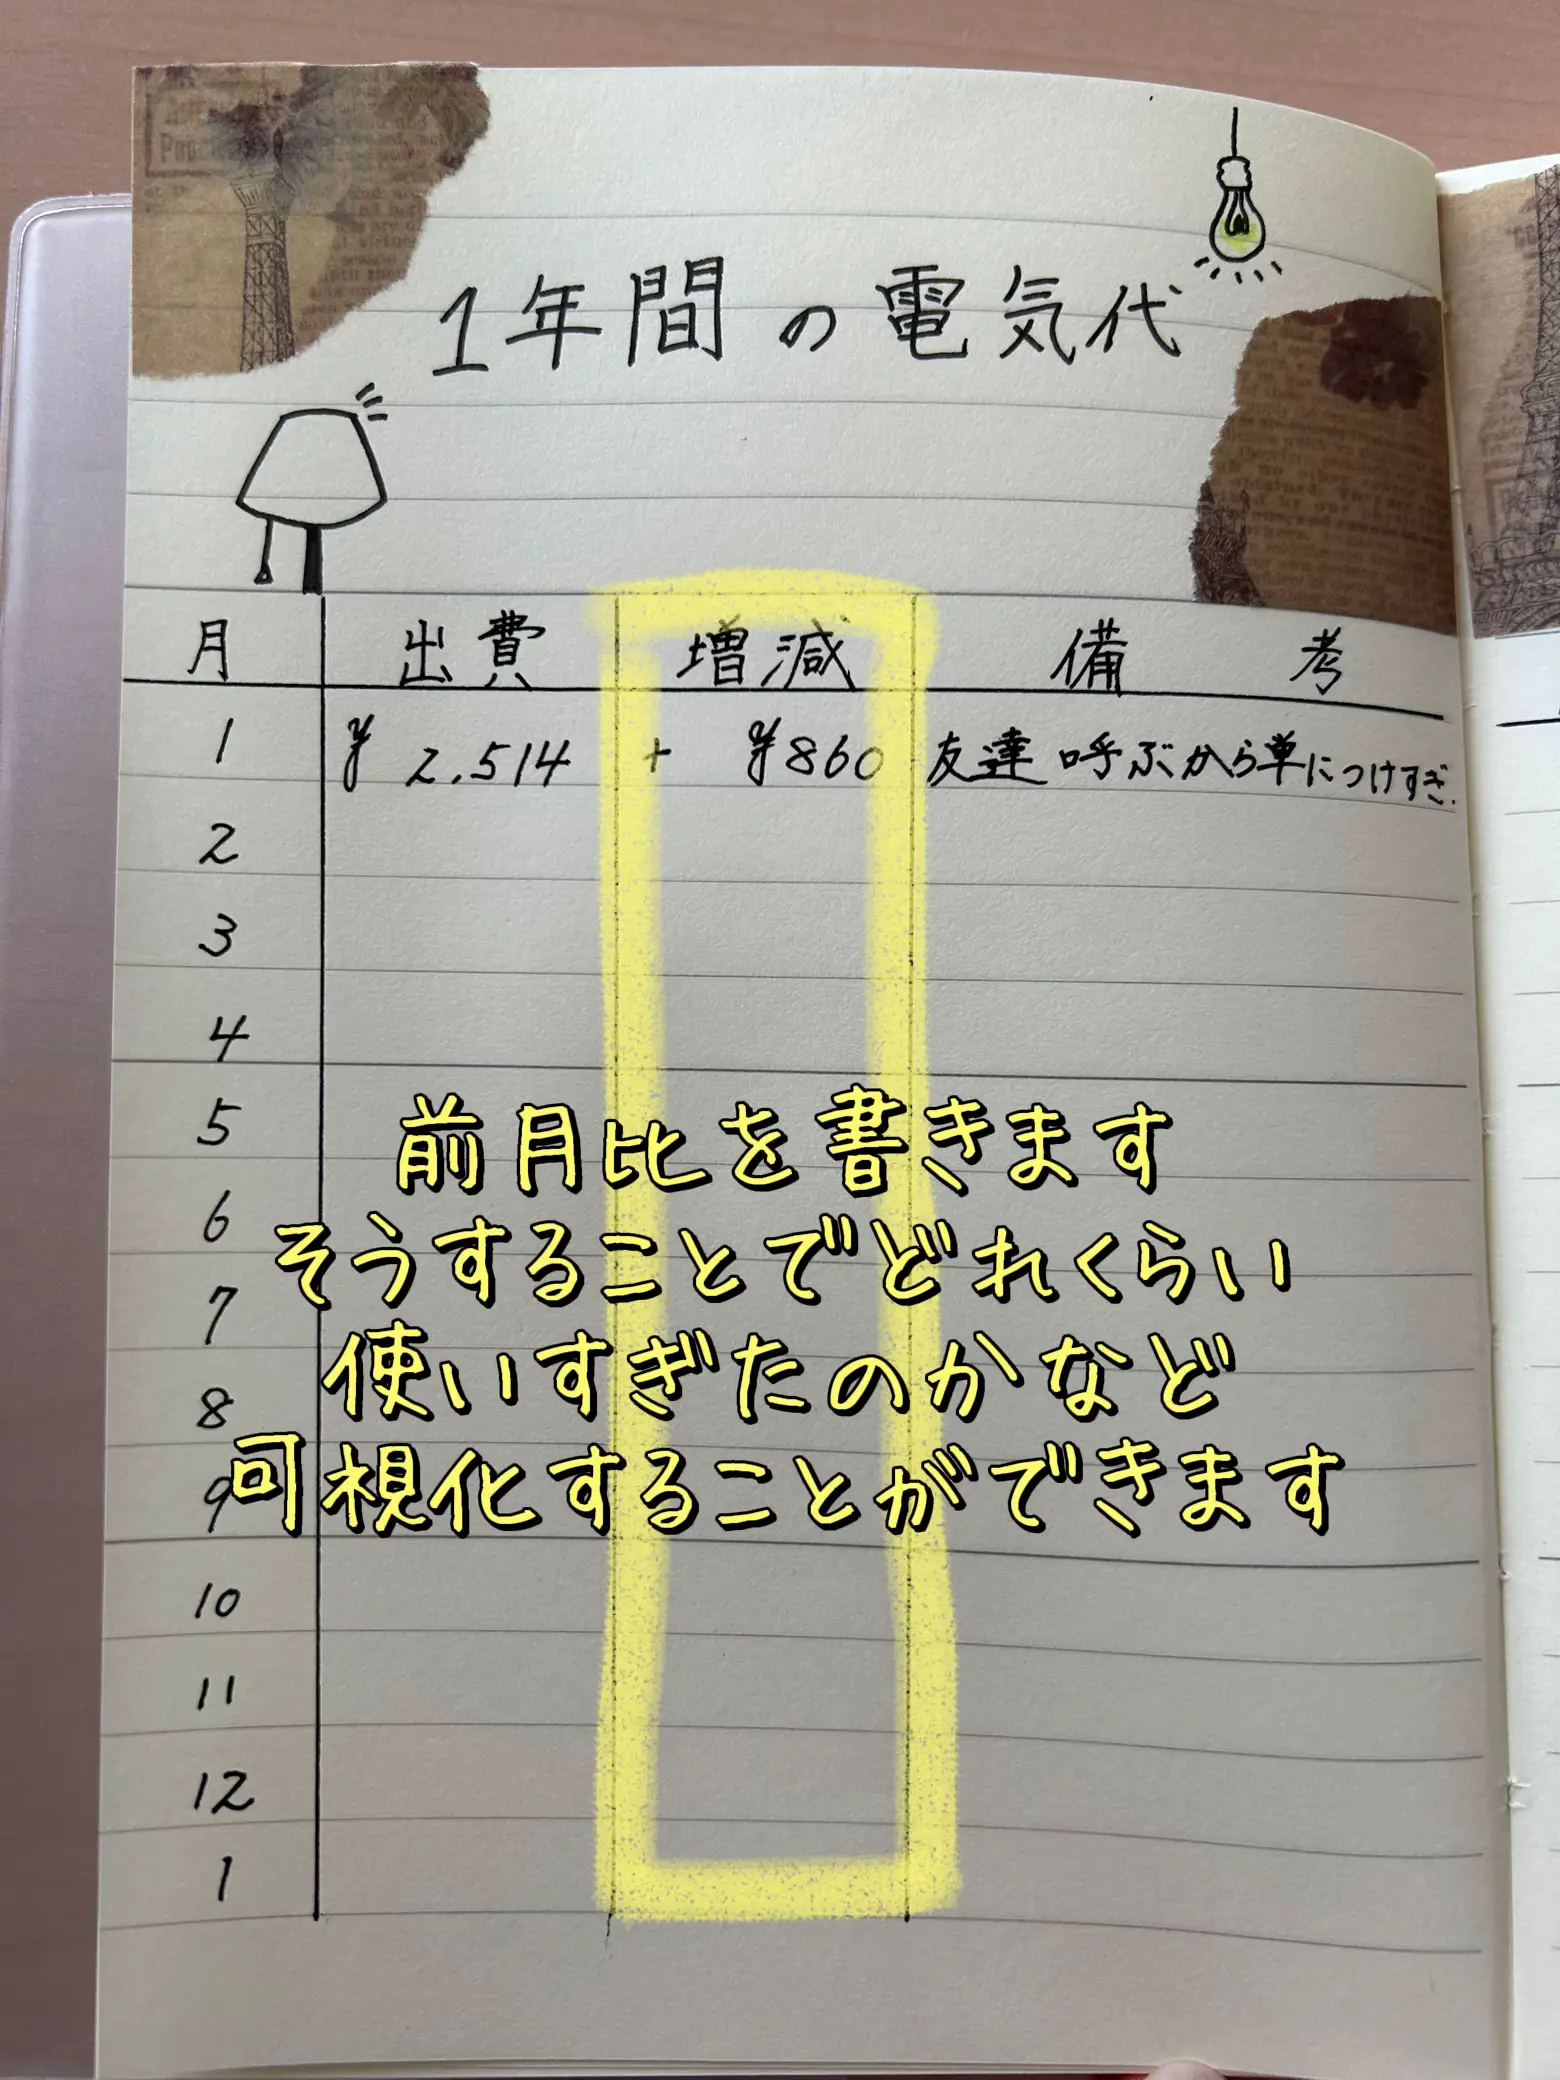 1年間の電気代
月 出費 増減 備考
1 ¥2,514 + ¥860 友達呼ぶから単につけすぎ.
2
3
4
5
前月比を書きます
6
そうすることでどれくらい
7
使いすぎたのかなど
8
可視化することができます
9
10
11
12
1